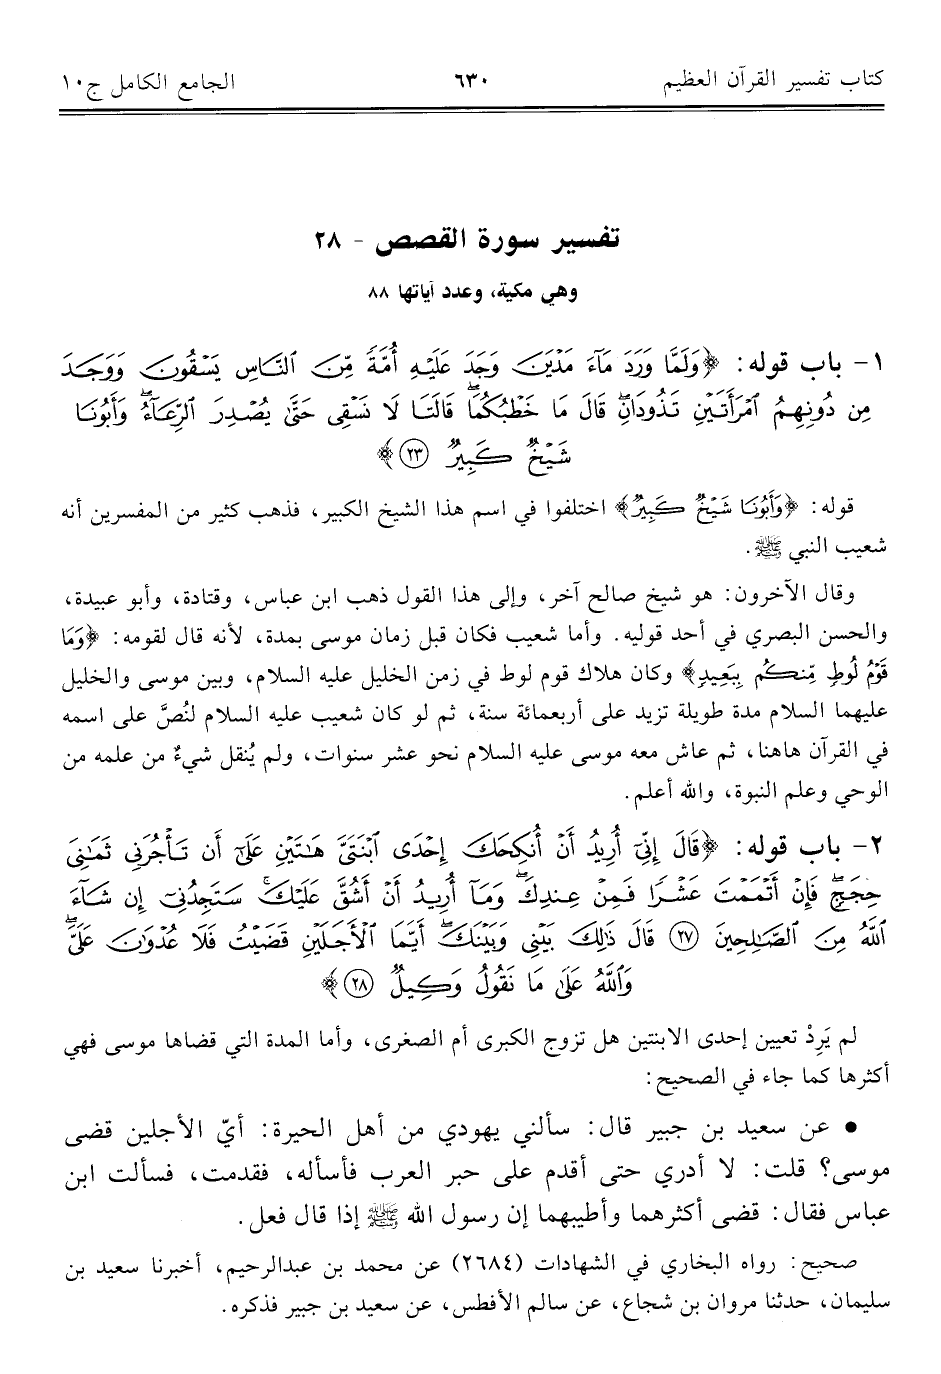 كتاب تفسير القرآن العظيم ٦٣٠ الجامع الكامل ج١٠
تفسير سورة القصص - ٢٨
وهي مكية، وعدد آياتها ٨٨
١- باب قوله: ﴿وَلَمَّا وَرَدَ مَآءَ مَدْيَنَ وَجَدَ عَلَيْهِ أُمَّةً مِّنَ ٱلنَّاسِ يَسْقُونَ وَوَجَدَ
مِن دُونِهِمُ ٱمْرَأَتَيْنِ تَذُودَانِۖ قَالَ مَا خَطْبُكُمَاۖ قَالَتَا لَا نَسْقِى حَتَّىٰ يُصْدِرَ ٱلرِّعَآءُۖ وَأَبُونَا
شَيْخٌ كَبِيرٌ ﴿٢٣﴾﴾
قوله: ﴿وَأَبُونَا شَيْخٌ كَبِيرٌ﴾ اختلفوا في اسم هذا الشيخ الكبير، فذهب كثير من المفسرين أنه
شعيب النبي ﷺ.
وقال الآخرون: هو شيخ صالح آخر، وإلى هذا القول ذهب ابن عباس، وقتادة، وأبو عبيدة،
والحسن البصري في أحد قوليه. وأما شعيب فكان قبل زمان موسى بمدة، لأنه قال لقومه: ﴿وَمَا
قَوْمُ لُوطٍ مِّنكُم بِبَعِيدٍ﴾ وكان هلاك قوم لوط في زمن الخليل عليه السلام، وبين موسى والخليل
عليهما السلام مدة طويلة تزيد على أربعمائة سنة، ثم لو كان شعيب عليه السلام لنُصَّ على اسمه
في القرآن هاهنا، ثم عاش معه موسى عليه السلام نحو عشر سنوات، ولم يُنقل شيءٌ من علمه من
الوحي وعلم النبوة، والله أعلم.
٢- باب قوله: ﴿قَالَ إِنِّىٓ أُرِيدُ أَنْ أُنكِحَكَ إِحْدَى ٱبْنَتَىَّ هَٰتَيْنِ عَلَىٰٓ أَن تَأْجُرَنِى ثَمَٰنِىَ
حِجَجٍۖ فَإِنْ أَتْمَمْتَ عَشْرًا فَمِنْ عِندِكَۖ وَمَآ أُرِيدُ أَنْ أَشُقَّ عَلَيْكَۚ سَتَجِدُنِىٓ إِن شَآءَ
ٱللَّهُ مِنَ ٱلصَّٰلِحِينَ ﴿٢٧﴾ قَالَ ذَٰلِكَ بَيْنِى وَبَيْنَكَۖ أَيَّمَا ٱلْأَجَلَيْنِ قَضَيْتُ فَلَا عُدْوَٰنَ عَلَىَّۖ
وَٱللَّهُ عَلَىٰ مَا نَقُولُ وَكِيلٌ ﴿٢٨﴾﴾
لم يَرِدْ تعيين إحدى الابنتين هل تزوج الكبرى أم الصغرى، وأما المدة التي قضاها موسى فهي
أكثرها كما جاء في الصحيح:
• عن سعيد بن جبير قال: سألني يهودي من أهل الحيرة: أيّ الأجلين قضى
موسى؟ قلت: لا أدري حتى أقدم على حبر العرب فأسأله، فقدمت، فسألت ابن
عباس فقال: قضى أكثرهما وأطيبهما إن رسول الله ﷺ إذا قال فعل.
صحيح: رواه البخاري في الشهادات (٢٦٨٤) عن محمد بن عبدالرحيم، أخبرنا سعيد بن
سليمان، حدثنا مروان بن شجاع، عن سالم الأفطس، عن سعيد بن جبير فذكره.